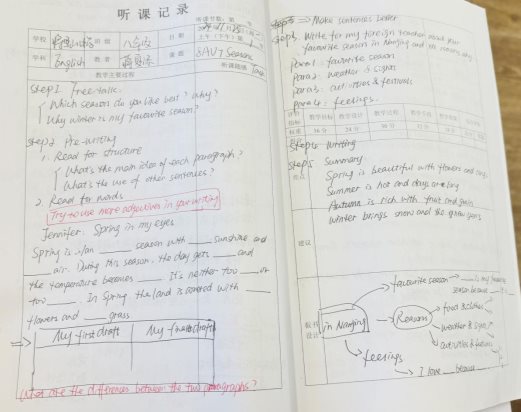 听课记录
学校 班级 日期
学科 English 教者 课题 8AU7 Seasons
教学主要过程 听课随感
Step1 Free talk.
Which season do you like best? Why?
Why winter is my favourite season?
Step2 Pre-writing
1. Read for structure
What's the main idea of each paragraph?
What's the use of other sentences?
2. Read for words
Try to use more adjectives in your writing
Jennifer: Spring in my eyes
Spring is /an ___ season with ___ sunshine and
___ air. During this season, the day gets ___ and
the temperature becomes ___. It's neither too ___ or
too ___. In Spring the land is covered with ___
flowers and ___ grass
My first draft My final draft
What are the differences between the two paragraphs?
=> Make sentences better
Step3 Write for my foreign teacher about your
favourite season in Nanjing and
Para1. favourite season
Para2. weather & sights
Para3. activities & festivals
Para4. feelings
评价指标 教学目标 教学设计 教学过程
权重
Step4 Writing
Step5 Summary
Spring is beautiful with flowers and
Summer is hot and days are long
Autumn is rich with fruit and grain
Winter brings snow and the
建议
板书设计
in Nanjing
favourite season → ___ is my favourite
season because
Reasons
food & clothes
weather & sights
activities & festivals
feelings
I love ___ because ___